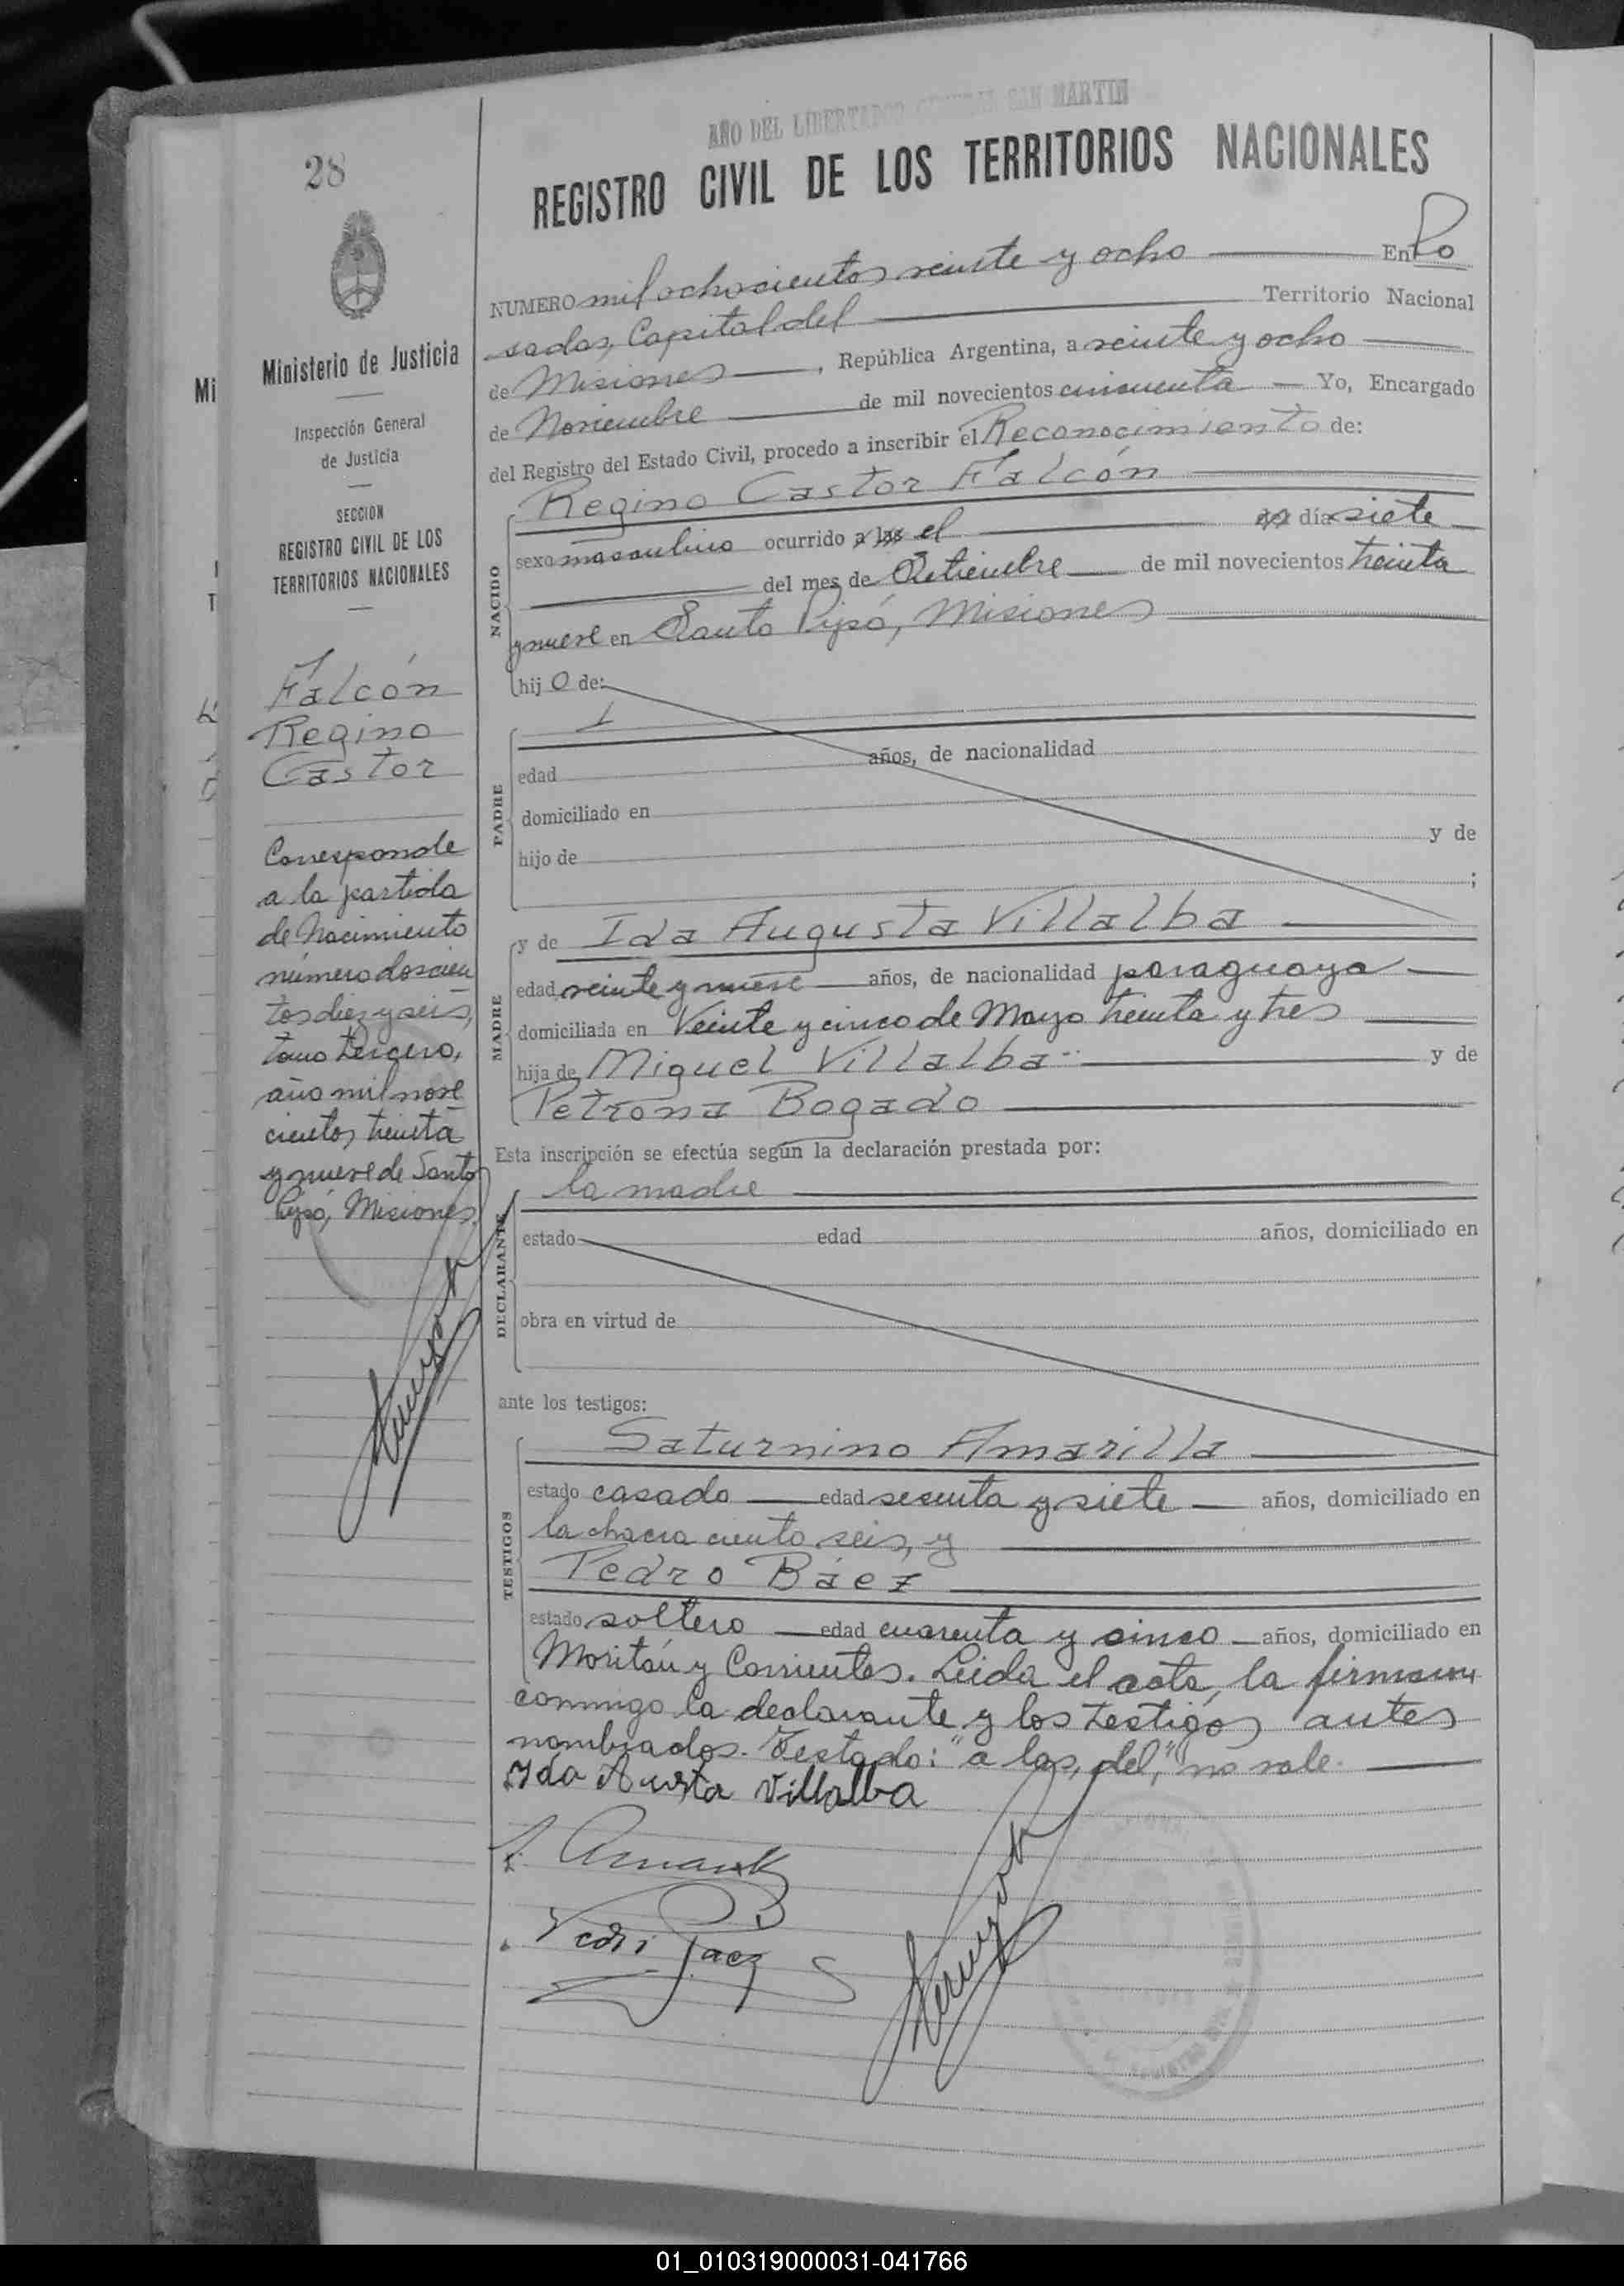 AÑO DEL LIBERTADOR GENERAL SAN MARTIN
28
REGISTRO CIVIL DE LOS TERRITORIOS NACIONALES
NUMERO mil ochocientos veinte y ocho En Po
sadas, Capital del Territorio Nacional
de Misiones, República Argentina, a veinte y ocho
de Noviembre de mil novecientos cincuenta Yo, Encargado
del Registro del Estado Civil, procedo a inscribir el Reconocimiento de:
Regino Castor Falcón
NACIDO
sexo masculino ocurrido a las el del día siete
del mes de Setiembre de mil novecientos treinta
y nueve en Santo Pipó, Misiones
hijo de:
PADRE
edad años, de nacionalidad
domiciliado en
hijo de y de
;
MADRE
y de Ida Augusta Villalba
edad veinte y nueve años, de nacionalidad paraguaya
domiciliada en Veinte y cinco de Mayo treinta y tres
hija de Miguel Villalba y de
Petrona Bogado
Esta inscripción se efectúa según la declaración prestada por:
la madre
DECLARANTE
estado edad años, domiciliado en
obra en virtud de
ante los testigos:
TESTIGOS
Saturnino Amarilla
estado casado edad sesenta y siete años, domiciliado en
la chacra ciento seis, y
Pedro Báez
estado soltero edad cuarenta y cinco años, domiciliado en
Moritán y Corrientes. Leida el acta, la firman
conmigo la declarante y los testigos antes
nombrados. Testado: "a las, del," no vale.
Ida Austa Villalba
Ministerio de Justicia
Inspección General
de Justicia
SECCION
REGISTRO CIVIL DE LOS
TERRITORIOS NACIONALES
Falcón
Regino
Castor
Corresponde
a la partida
de Nacimiento
número doscien
tos diez y seis,
tomo tercero,
año mil nove
cientos treinta
y nueve de Santo
Pipó, Misiones.
Mi
01_010319000031-041766